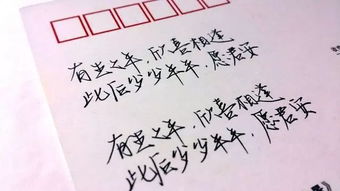 有生之年，欣喜相逢
此后岁岁年年，愿君安
有生之年，欣喜相逢
此后岁岁年年，愿君安